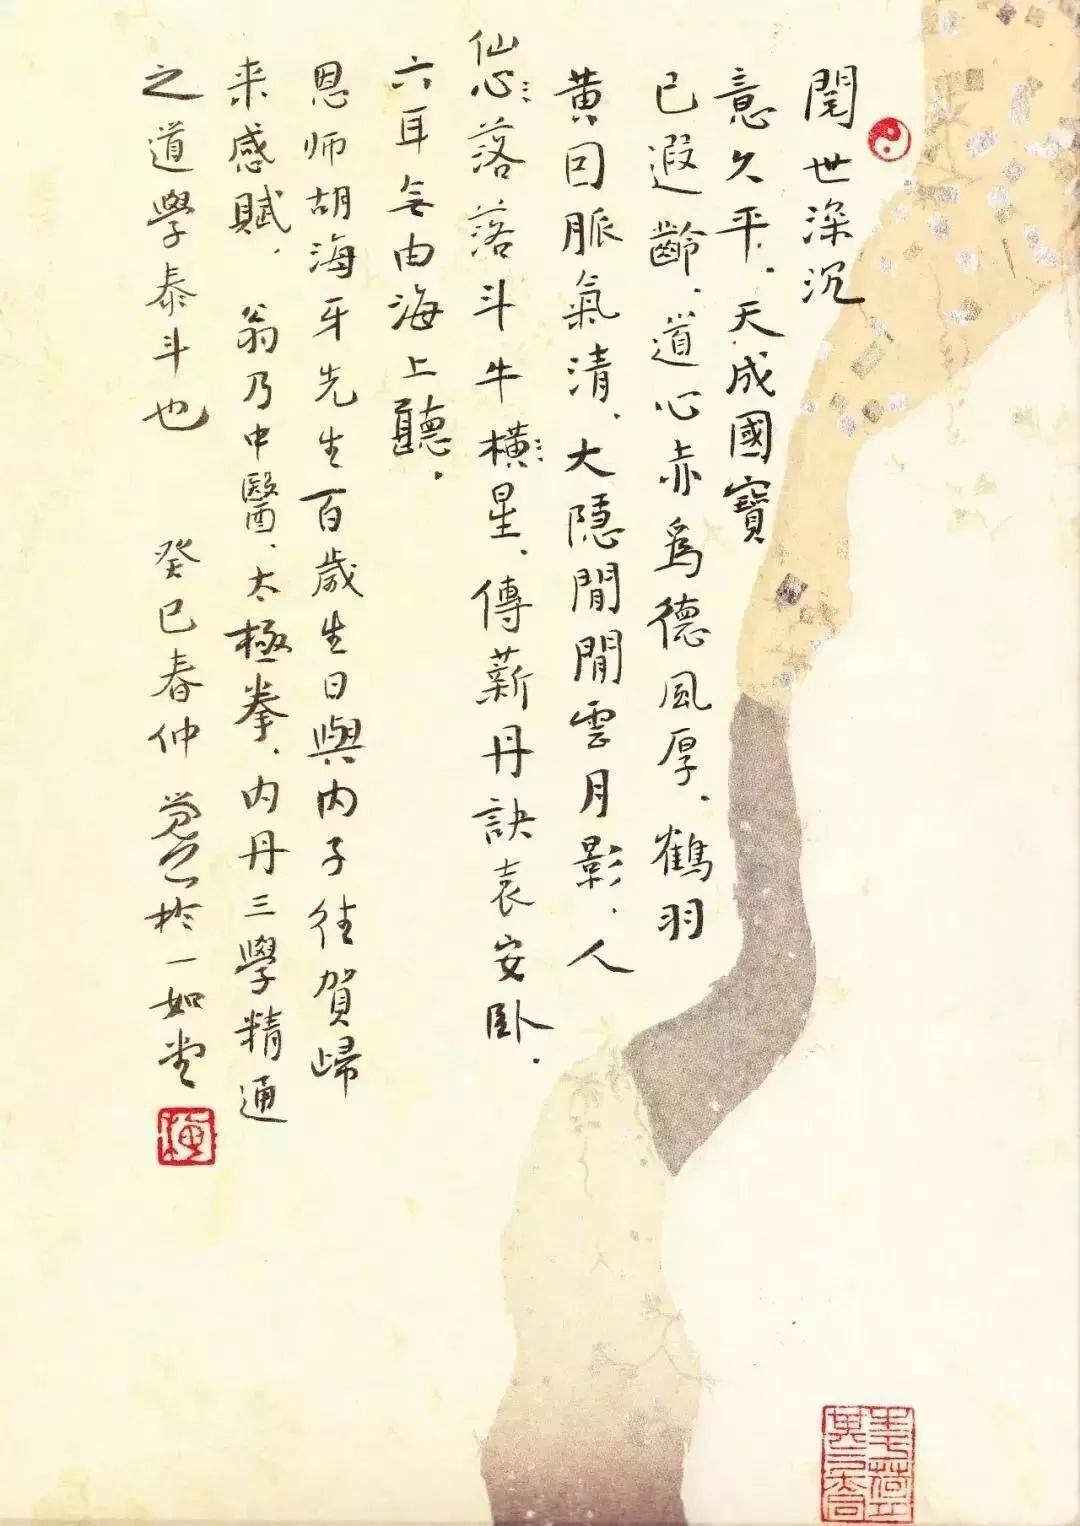 閲世深沉
意久平、天成國寶
已遐齡、道心赤爲德風厚、鶴羽
黄因脈氣清、大隱閒閒雲月影、人
仙心落落斗牛橫星、傳薪丹訣袁安卧、
六耳無由海上聽、
恩師胡海牙先生百歲生日與内子往賀歸
来感賦、翁乃中醫、太極拳、内丹三學精通
之道學泰斗也 癸巳春仲 於一如堂